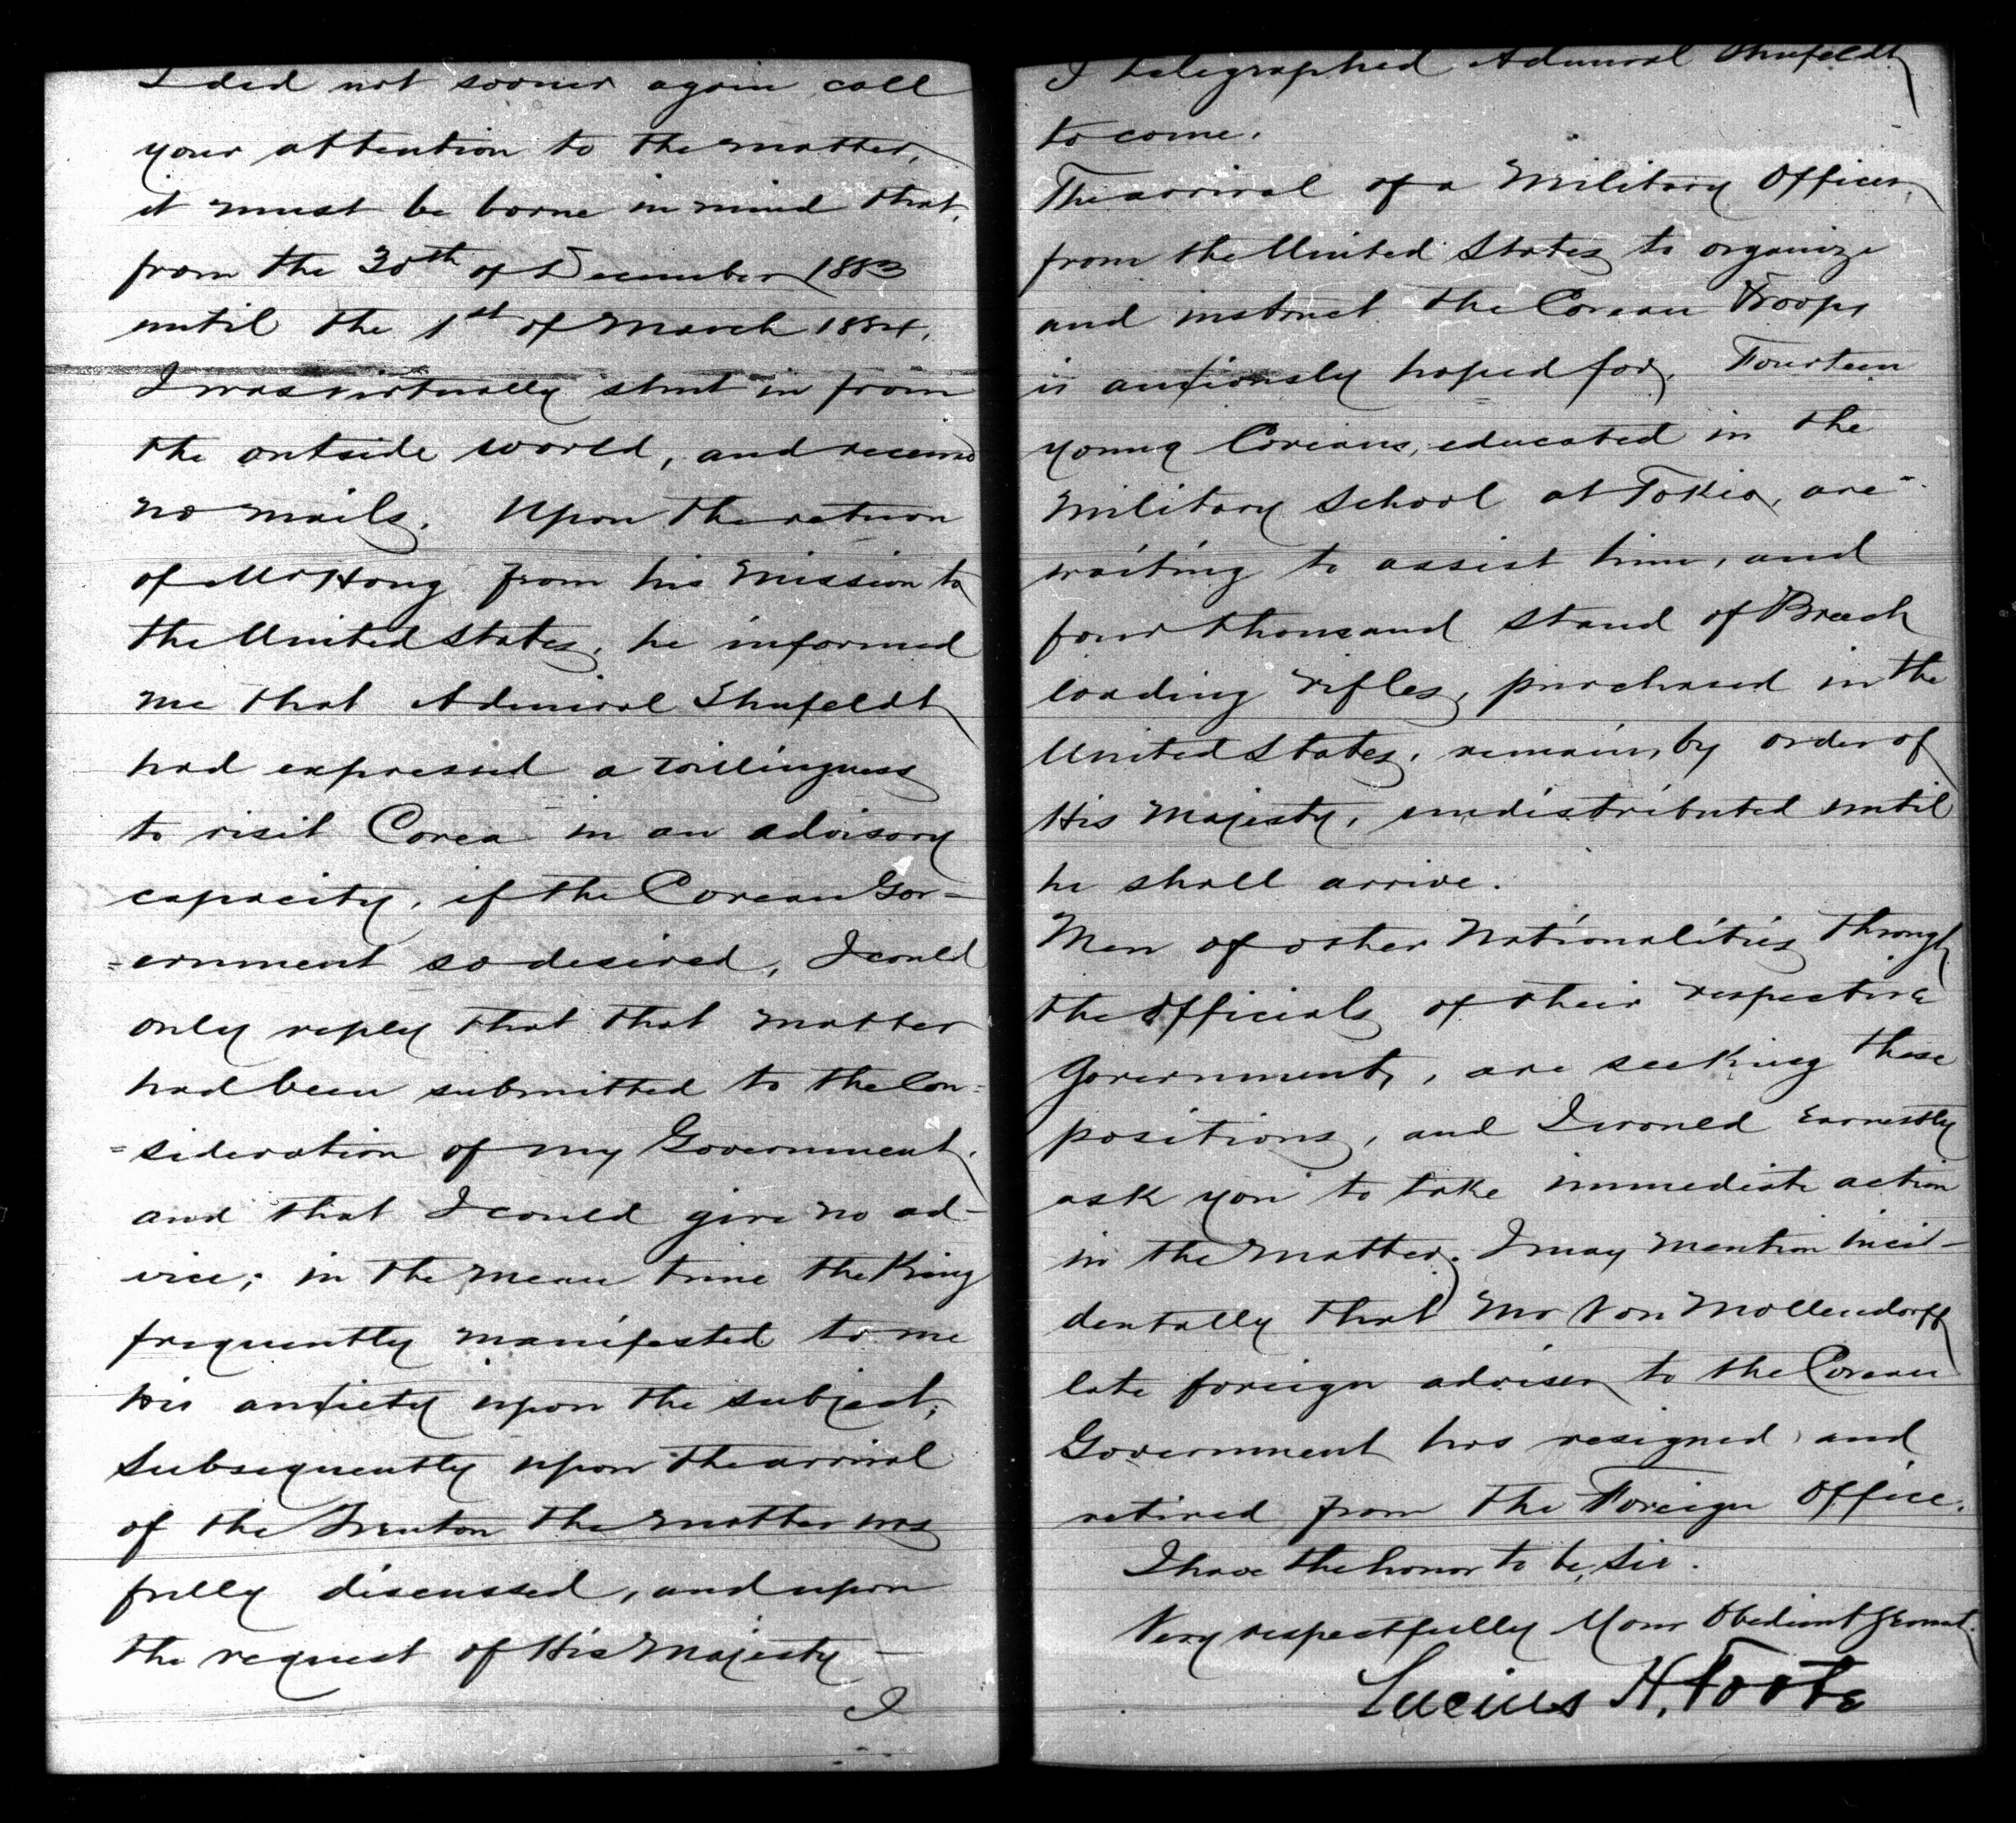 I did not sooner again call
your attention to the matter,
it must be borne in mind that,
from the 30th of December 1883
until the 1st of March 1884,
I was virtually shut in from
the outside world, and received
no mails. Upon the return
of Mr Hong from his mission to
the United States, he informed
me that Admiral Shufeldt
had expressed a willingness
to visit Corea in an advisory
capacity, if the Corean Gov-
-ernment so desired, I could
only reply that that matter
had been submitted to the Con-
=sideration of my Government,
and that I could give no ad-
vice; in the mean time the King
frequently manifested to me
his anxiety upon the subject;
Subsequently upon the arrival
of the Trenton the matter was
fully discussed, and upon
the request of His Majesty -
I
I telegraphed Admiral Shufeldt
to come.
The arrival of a Military Officer,
from the United States to organize
and instruct the Corean Troops
is anxiously hoped for. Fourteen
young Coreans, educated in the
Military School at Tokio, are
waiting to assist him, and
four thousand stand of Breech
loading rifles, purchased in the
United States, remain, by order of
His Majesty, undistributed until
he shall arrive.
Men of other Nationalities through
the officials of their respective
Governments, are seeking these
positions, and I would earnestly
ask you to take immediate action
in the matter. I may mention inci-
dentally that Mr Von Mollendorff
late foreign adviser to the Corean
Government has resigned and
retired from the Foreign Office.
I have the honor to be, Sir.
Very respectfully Your Obedient Servant.
Lucius H. Foote